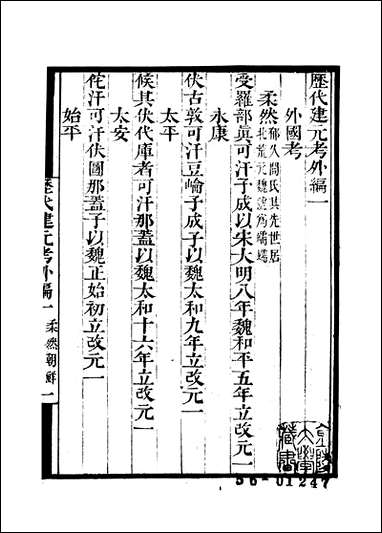 歷代建元考外編一
外國考
柔然郁久閭氏其先世居
北荒元魏號為蠕蠕
受羅部眞可汗子成以宋大明八年魏和平五年立改元一
永康
伏古敦可汗豆崘子成子以魏太和九年立改元一
太平
候其伏代庫者可汗那蓋以魏太和十六年立改元一
太安
佗汗可汗伏圖那蓋子以魏正始初立改元一
始平
歷代建元考外編一 柔然朝鮮 一
大學
藏書
56-01247